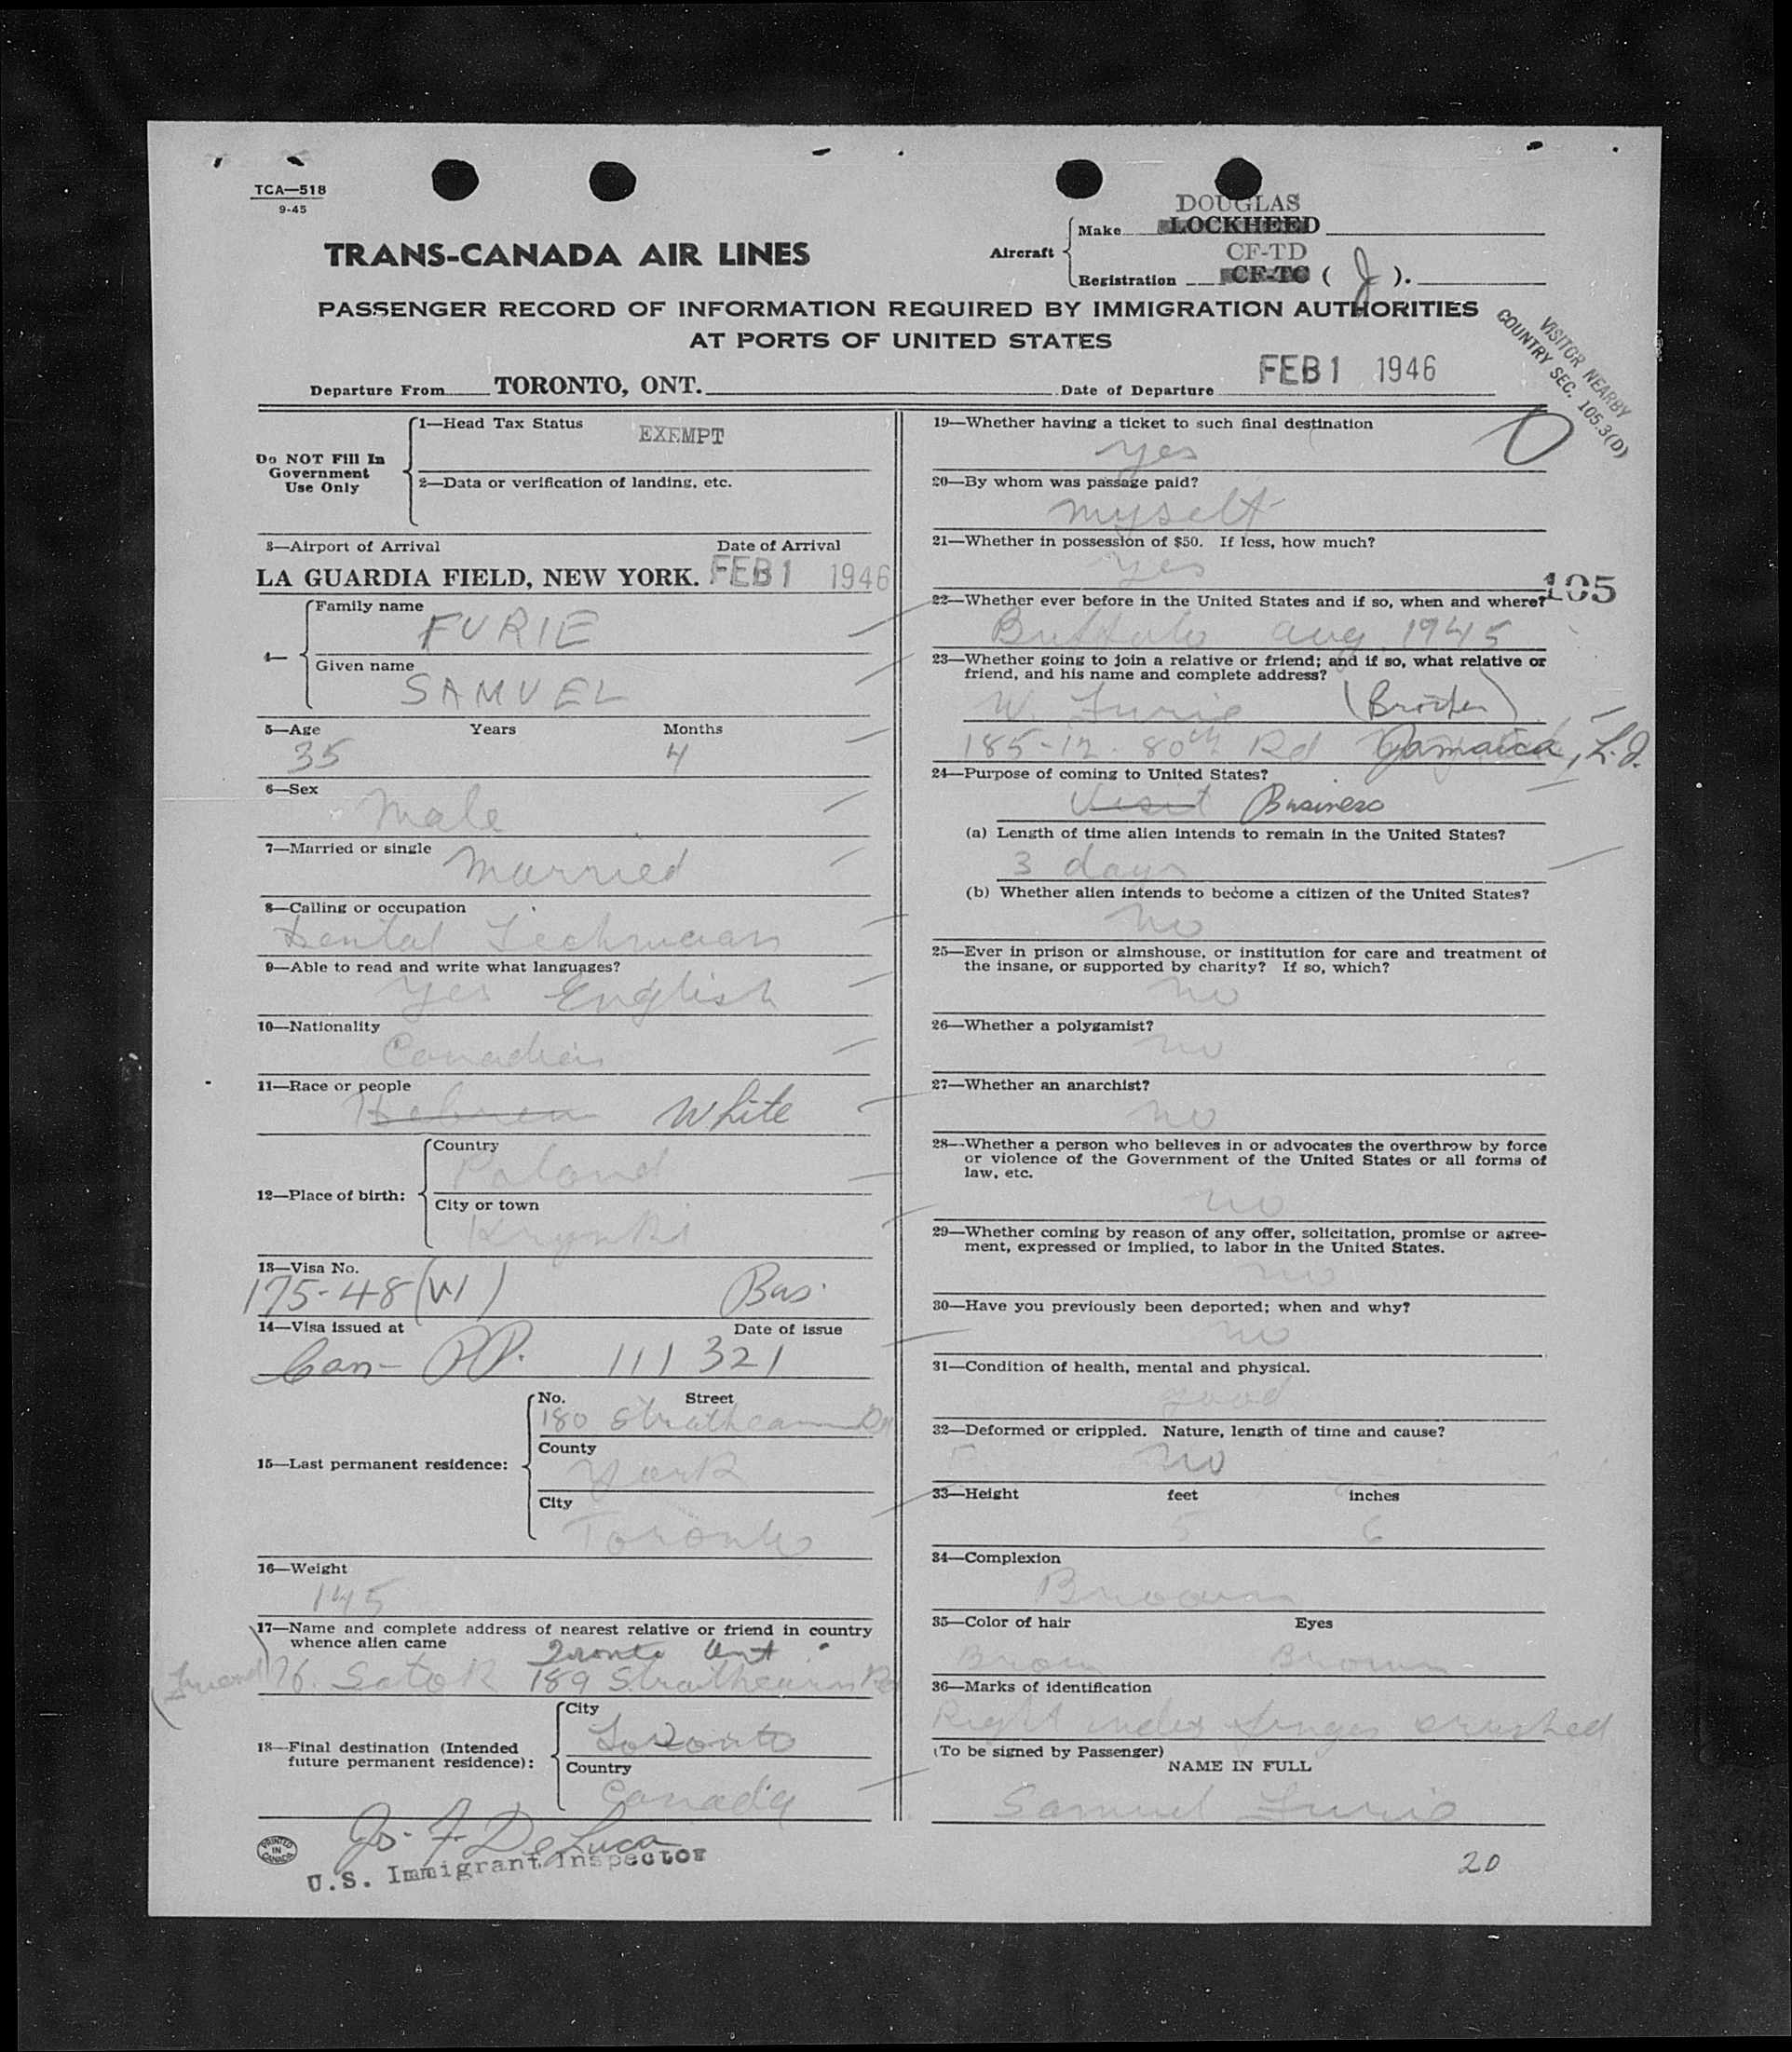 TCA—518
9-45
TRANS-CANADA AIR LINES
Aircraft
Make DOUGLAS
LOCKHEED
CF-TD
Registration CF-TC ( J ).
PASSENGER RECORD OF INFORMATION REQUIRED BY IMMIGRATION AUTHORITIES
AT PORTS OF UNITED STATES
VISITOR NEARBY
COUNTRY SEC. 105.3(D)
Departure From TORONTO, ONT. Date of Departure FEB 1 1946
Do NOT Fill In
Government
Use Only
1—Head Tax Status EXEMPT
2—Data or verification of landing, etc.
3—Airport of Arrival Date of Arrival
LA GUARDIA FIELD, NEW YORK. FEB 1 1946
4—
Family name
FURIE
Given name
SAMUEL
5—Age Years Months
35 4
6—Sex
Male
7—Married or single
Married
8—Calling or occupation
Dental Technician
9—Able to read and write what languages?
Yes English
10—Nationality
Canadian
11—Race or people
Hebrew White
12—Place of birth:
Country
Poland
City or town
Krynki
13—Visa No.
175-48 (W) Bus.
14—Visa issued at Date of issue
Can- PP. 111321
15—Last permanent residence:
No. Street
180 Strathearn
County
York
City
Toronto
16—Weight
145
17—Name and complete address of nearest relative or friend in country
whence alien came
Toronto Ont
(Friend) H. Satok 189 Strathearn Rd
18—Final destination (Intended
future permanent residence):
City
Toronto
Country
Canada
Jos. F. DeLuca
U.S. Immigrant Inspector
PRINTED
IN
CANADA
19—Whether having a ticket to such final destination
yes
20—By whom was passage paid?
myself
21—Whether in possession of $50. If less, how much?
yes
105
22—Whether ever before in the United States and if so, when and where?
Buffalo aug 1945
23—Whether going to join a relative or friend; and if so, what relative or
friend, and his name and complete address?
W. Furie (Brother)
185-12 80th Rd Jamaica, L.I.
24—Purpose of coming to United States?
Visit Business
(a) Length of time alien intends to remain in the United States?
3 days
(b) Whether alien intends to become a citizen of the United States?
no
25—Ever in prison or almshouse, or institution for care and treatment of
the insane, or supported by charity? If so, which?
no
26—Whether a polygamist?
no
27—Whether an anarchist?
no
28—Whether a person who believes in or advocates the overthrow by force
or violence of the Government of the United States or all forms of
law, etc.
no
29—Whether coming by reason of any offer, solicitation, promise or agree-
ment, expressed or implied, to labor in the United States.
no
30—Have you previously been deported; when and why?
no
31—Condition of health, mental and physical.
good
32—Deformed or crippled. Nature, length of time and cause?
No
33—Height feet inches
5 6
34—Complexion
Brown
35—Color of hair Eyes
Brown Brown
36—Marks of identification
Right index finger crushed
(To be signed by Passenger)
NAME IN FULL
Samuel Furie
20